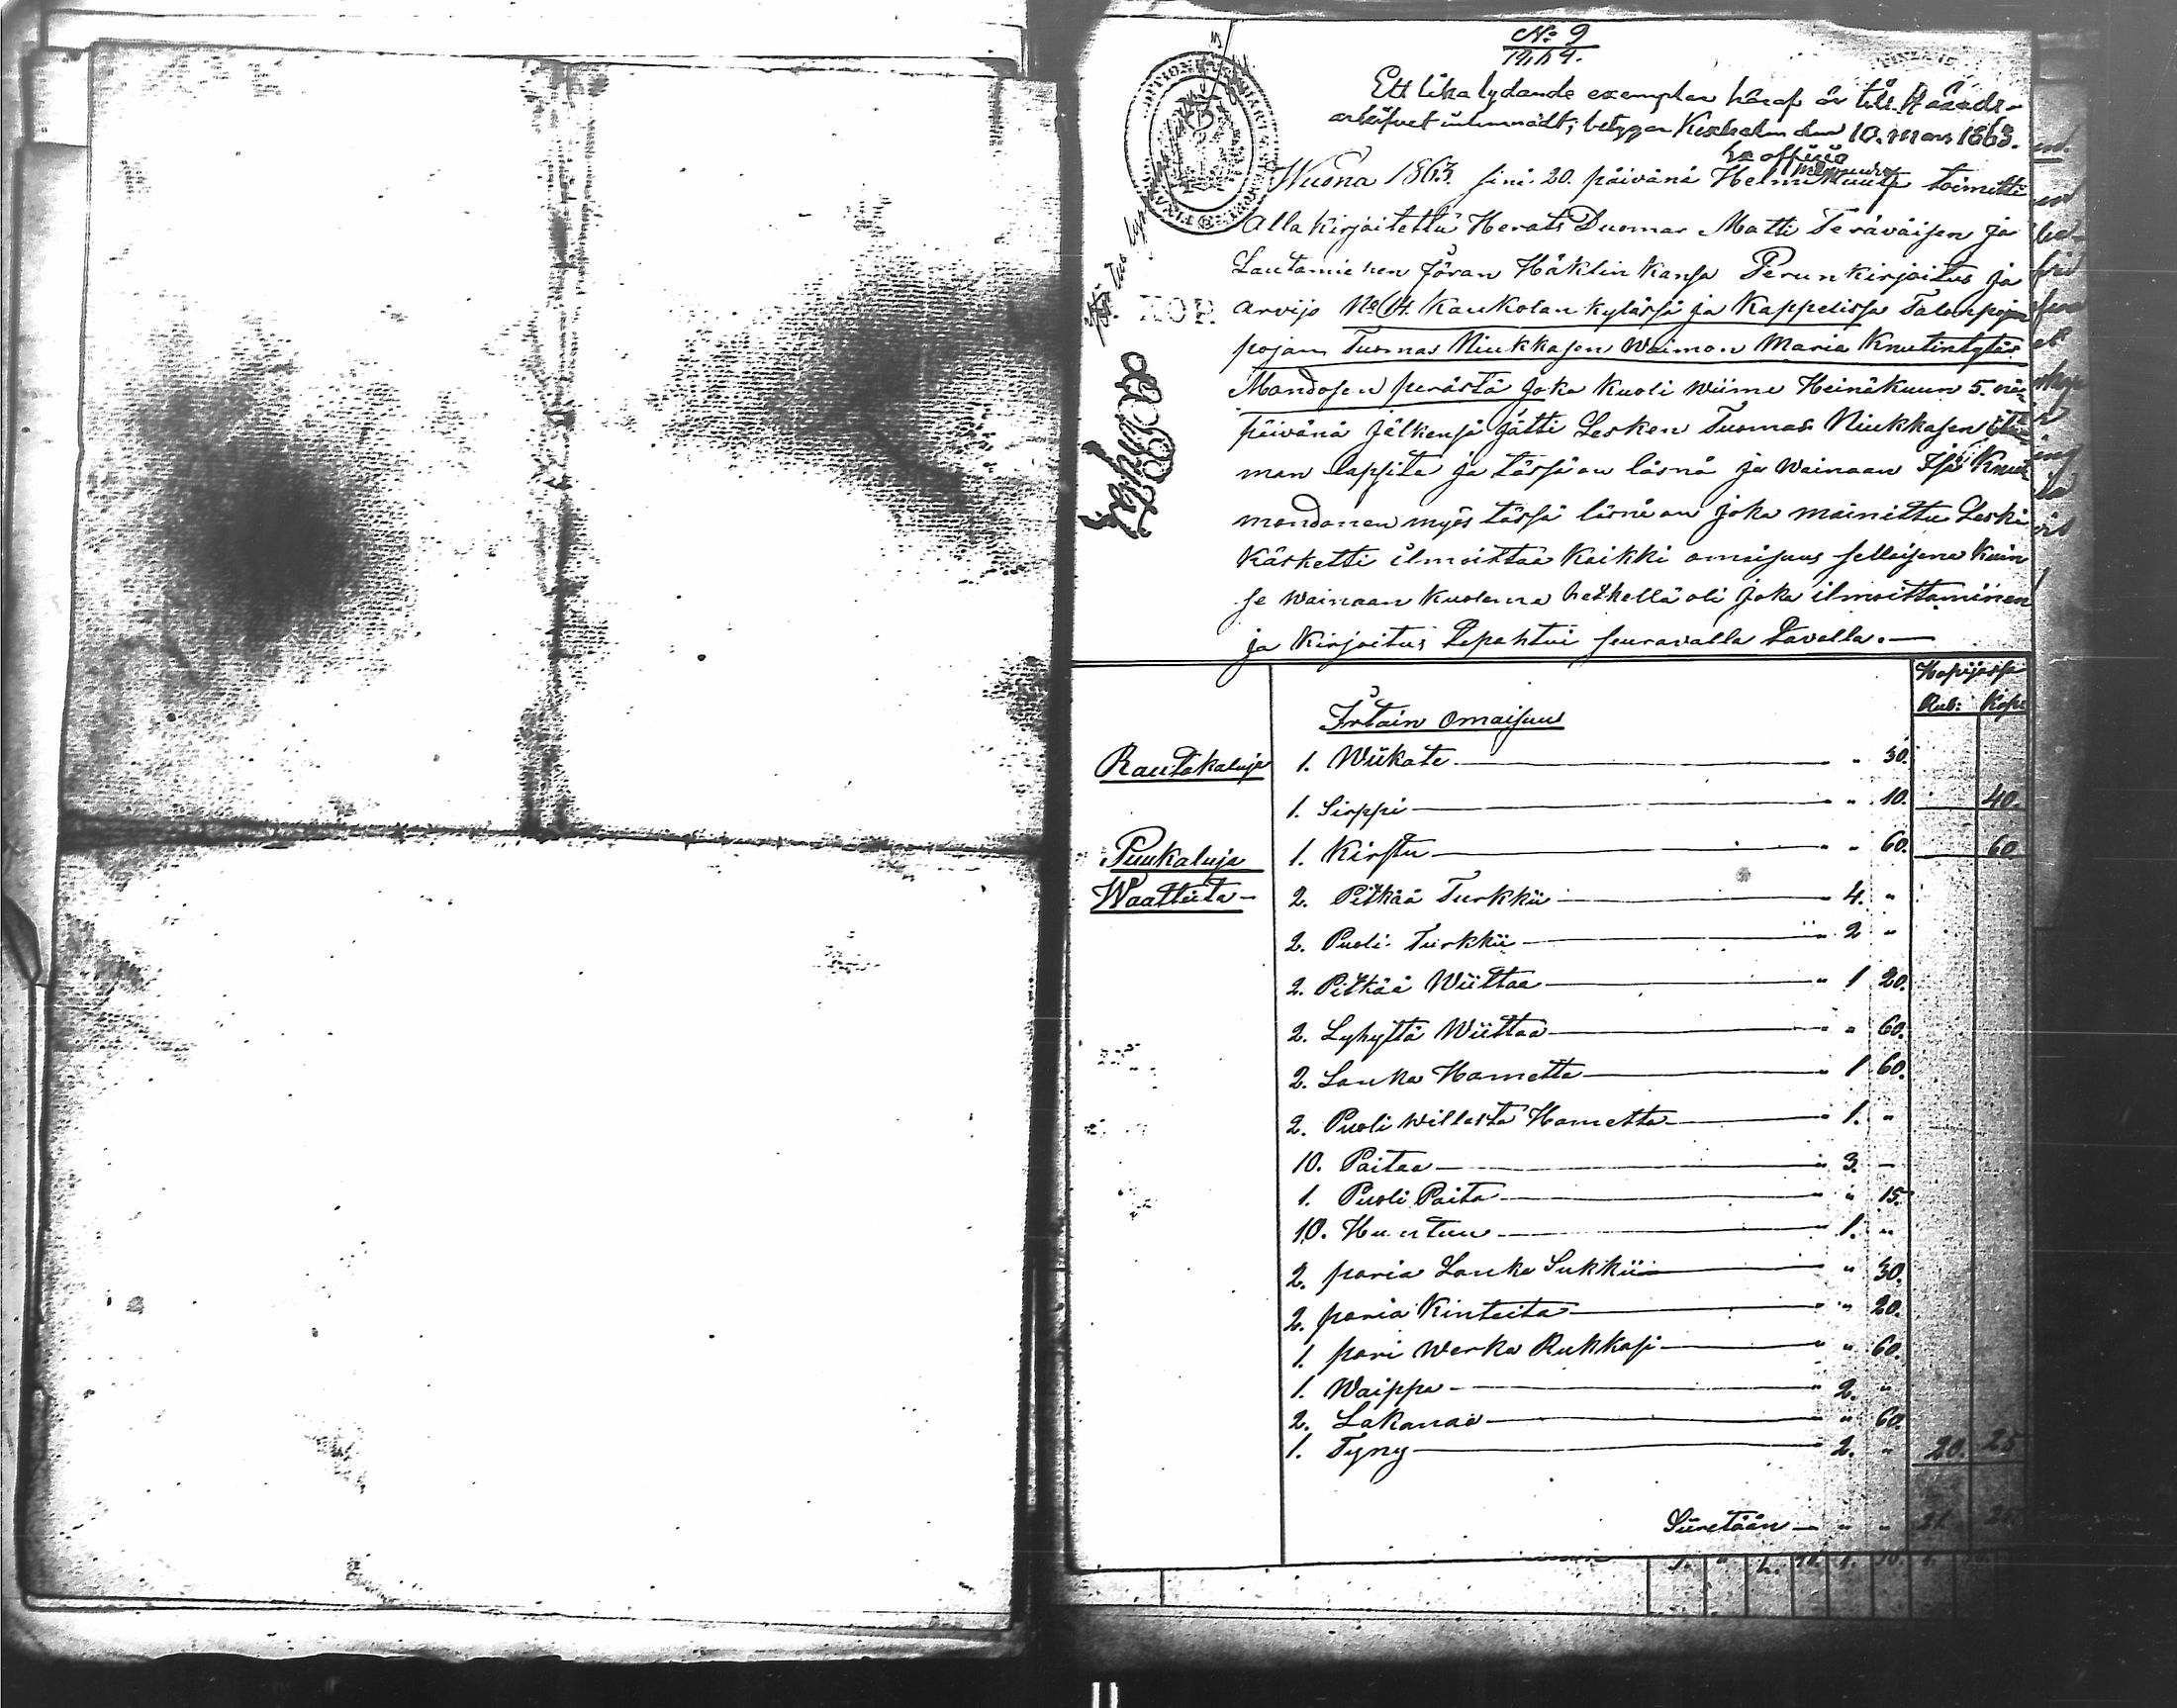 No 9
1864.
Ett lika lydande exemplar häraf är till Härads-
arkifvet inlemnadt; betygar Kexholm den 10. mars 1863.
Ex officio
Wuona 1863. sinä 20. päivänä Helmikuuta toimitti
Allakirjoitettu Herats Duomar Matti Teräväisen ja
Lautamiehen Jöran Häklin kansa Perunkirjoitus ja
KOP.
arvijo No 14. Kaukolan kylässä ja Kappelissa Talonpojan
pojan Tuomas Niukkasen Waimon Maria Knutintytär
Mandosen perästä Joka Kuoli wiime Heinäkuun 5.
päivänä Jälkensä Jätti Lesken Tuomas Niukkasen
man lapsita ja tässä on läsnä ja Wainaan Isä Knut
mondonen myös tässä läsnä on joka mainittu Leski
Käsketti ilmoittaa Kaikki omaisuus sellaisena Kuin
se Wainaan Kuolema hetkellä oli Joka ilmoittaminen
ja Kirjoitus Tapahtui seuravalla Tavalla.—
Hopijassa
Rub: Kop:
Irtain Omaisuus
Rautakaluja 1. Wiikate — " 30.
1. Sirppi — " 10. 40.
Puukaluja 1. Kirstu — " 60. 60
Waatteita — 2. Pitkää Turkkii — 4. "
2. Puoli Turkkii — 2 "
2. Pitkää Wiittaa — 1 20.
2. Lyhyttä Wiittaa — " 60.
2. Lanka Hametta — 1 60.
2. Puoli willasta Hametta — 1. "
10. Paitaa — 3. —
1. Puoli Paita — " 15.
10. Huntuu — 1. "
2. paria Lanka Sukkii — " 30.
2. paria Kinteita — " 20.
1. pari Werka Rukkasi — " 60.
1. Waippa — 2. "
2. Lakanaa — " 60.
1. Tyny — 2. " 20. 25
Siiretään — " " 21. 25.